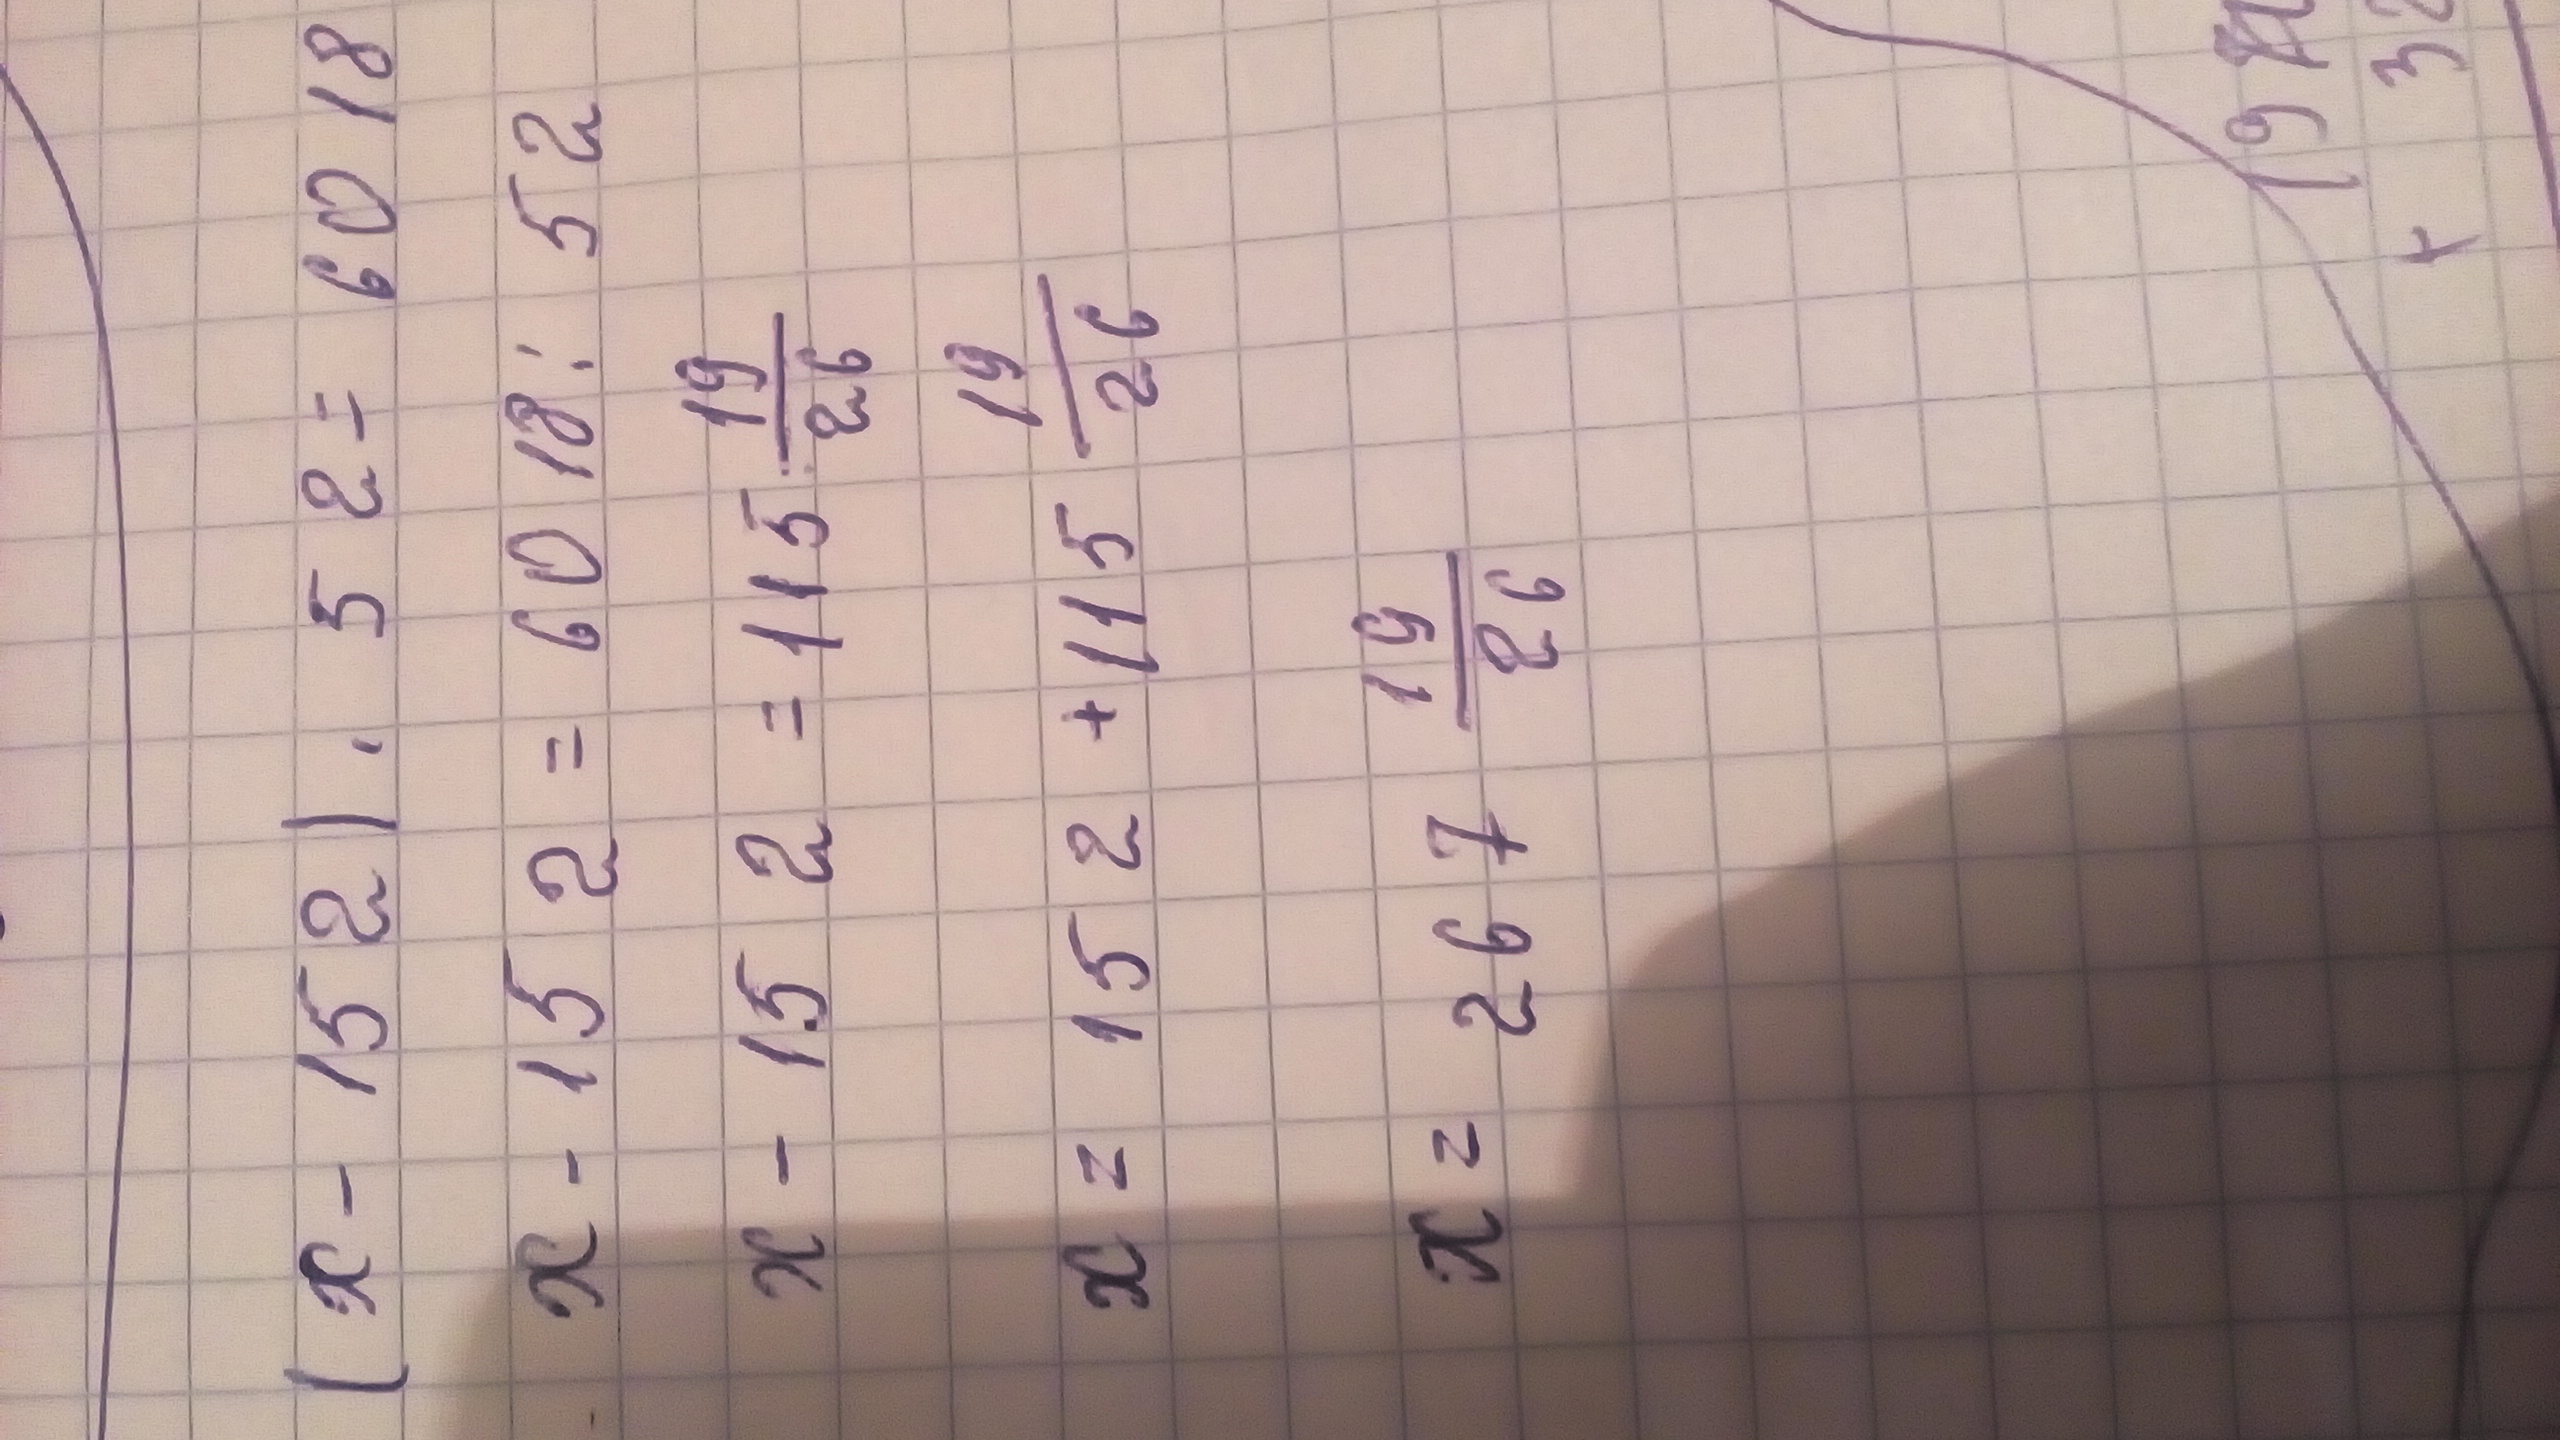 (x - 152) · 52 = 6018
x - 152 = 6018 : 52
x - 152 = 115 19/26
x = 152 + 115 19/26
x = 267 19/26
19
+ 32